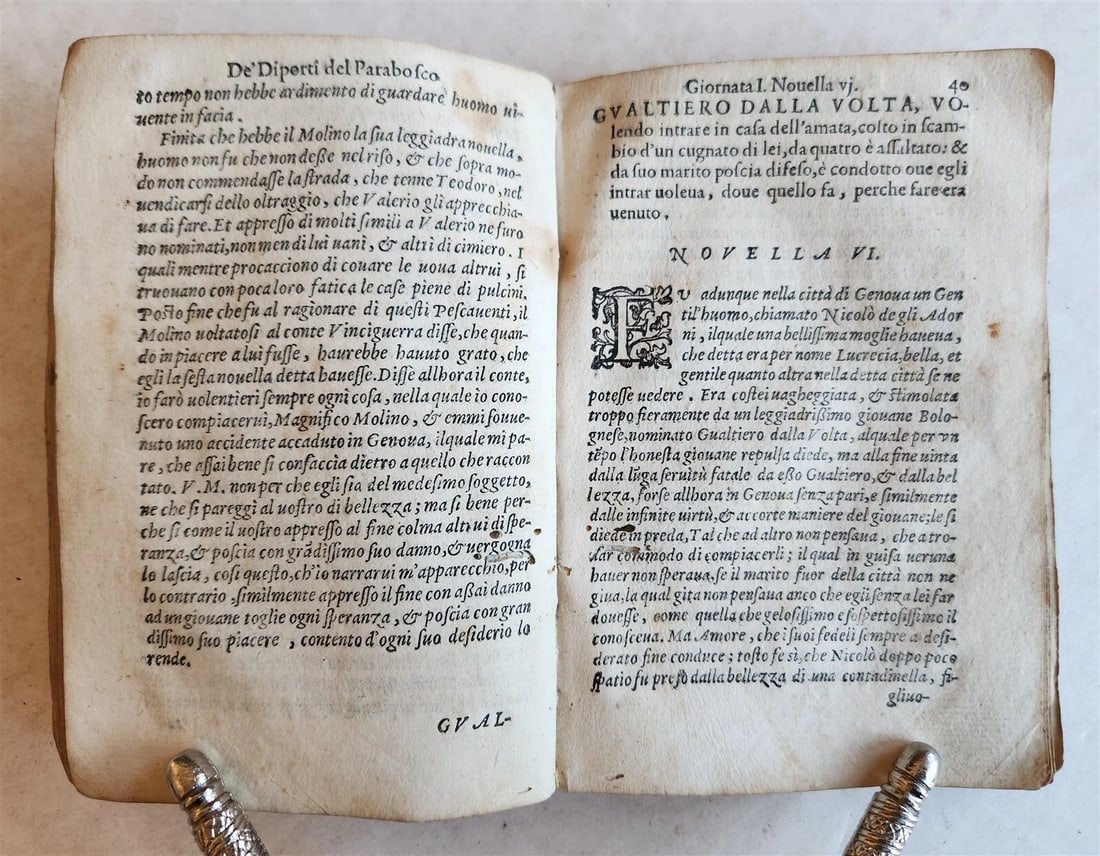 De' Diporti del Parabosco
to tempo non hebbe ardimento di guardare huomo ui-
uente in facia.
Finita che hebbe il Molino la sua leggiadra nouella,
huomo non fu che non desse nel riso, & che sopra mo-
do non commendasse la strada, che tenne Teodoro, nel
uendicarsi dello oltraggio, che Valerio gli apprecchia-
ua di fare. Et appresso di molti simili a Valerio ne furo
no nominati, non men di lui uani, & altri di cimiero. I
quali mentre procacciono di couare le uoua altrui, si
truouano con poca loro fatica le case piene di pulcini.
Posto fine che fu al ragionare di questi Pescauenti, il
Molino uoltatosi al conte Vinciguerra disse, che quan-
do in piacere a lui fusse, haurebbe hauuto grato, che
egli la sesta nouella detta hauesse. Disse allhora il conte,
io farò uolentieri sempre ogni cosa, nella quale io cono-
scero compiacerui, Magnifico Molino, & emmi souue-
nuto uno accidente accaduto in Genoua, ilquale mi pa-
re, che assai bene si confaccia dietro a quello che raccon
tato. V. M. non per che egli sia del medesimo soggetto,
ne che si pareggi al uostro di bellezza; ma si bene per-
che si come il uostro appresso al fine colma altrui di spe-
ranza, & poscia con grãdissimo suo danno, & uergogna
lo lascia, cosi questo, ch'io narrarui m'apparecchio, per
lo contrario similmente appresso il fine con assai danno
ad un giouane toglie ogni speranza, & poscia con gran
dissimo suo piacere, contento d'ogni suo desiderio lo
rende.
GVAL-
Giornata I. Nouella vj. 40
GVALTIERO DALLA VOLTA, VO-
lendo intrare in casa dell'amata, colto in scam-
bio d'un cugnato di lei, da quatro è assaltato: &
da suo marito poscia difeso, è condotto oue egli
intrar uoleua, doue quello fa, perche fare era
uenuto.
NOVELLA VI.
FV adunque nella città di Genoua un Gen
til'huomo, chiamato Nicolò de gli Ador
ni, ilquale una bellissima moglie haueua,
che detta era per nome Lucrecia, bella, et
gentile quanto altra nella detta città se ne
potesse uedere. Era costei uagheggiata, & stimolata
troppo fieramente da un leggiadrissimo giouane Bolo-
gnese, nominato Gualtiero dalla Volta, alquale per vn
tẽpo l'honesta giouane repulsa diede, ma alla fine uinta
dalla lũga seruitù fatale da esso Gualtiero, & dalla bel
lezza, forse allhora in Genoua senza pari, e similmente
dalle infinite virtù, & accorte maniere del giouane; le si
diede in preda, Tal che ad altro non pensaua, che a tro-
uar commodo di compiacerli; il qual in guisa ueruna
hauer non speraua, se il marito fuor della città non ne
giua, la qual gita non pensaua anco che egli senza lei far
douesse, come quella che gelosissimo e sospettosissimo il
conosceua. Ma Amore, che i suoi fedeli sempre a desi-
derato fine conduce; tosto fe sì, che Nicolò doppo poco
spatio fu preso dalla bellezza di una contadinella, fi-
gliuo-